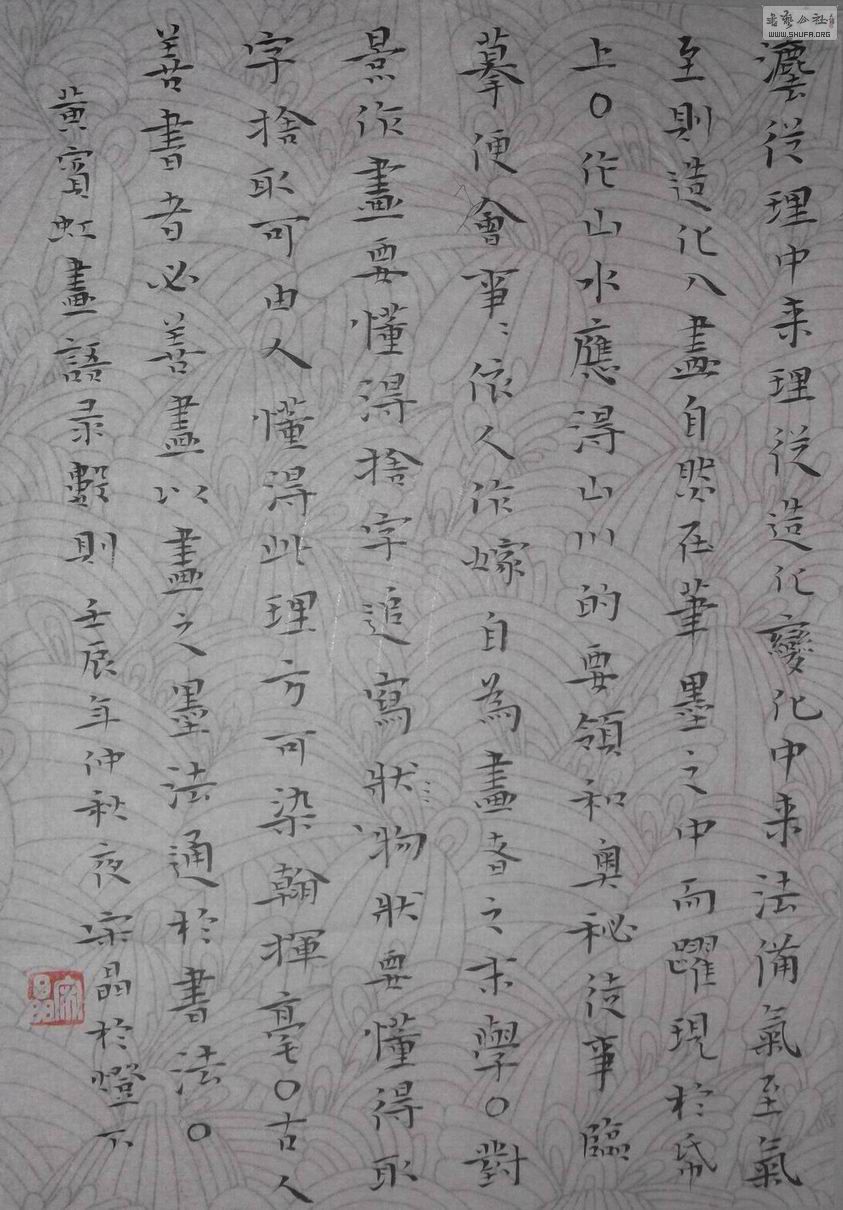 灋從理中来理從造化變化中来法備氣至氣
至則造化入畫自然在筆墨之中而躍現於帋
上〇作山水應得山川的要領和奥秘徒事臨
摹便會事〻依人作嫁自為畫者之末學〇對
景作畫要懂得捨字追寫狀物狀要懂得取
字捨取可由人懂得此理方可染翰揮毫〇古人
善書者必善畫以畫之墨法通於書法〇
黄賓虹畫語录數則壬辰年仲秋夜宗晶於燈下
WWW.SHUFA.ORG